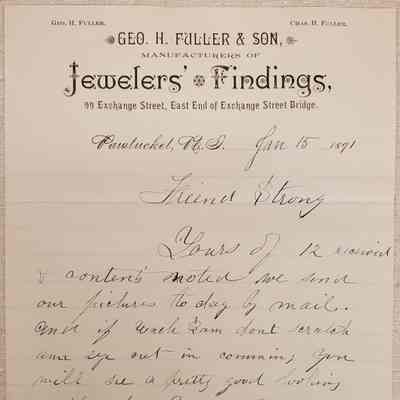 Geo. H. Fuller. Chas. H. Fuller.
GEO. H. FULLER & SON,
MANUFACTURERS OF
Jewelers' Findings,
99 Exchange Street, East End of Exchange Street Bridge.
Pawtucket, R. I. Jan 15 1891
Friend Strong
Yours of 12 received
& contents noted we send
our pictures to day by mail.
and if Uncle Sam dont scratch
our eye out in comming, you
will see a pretty good looking